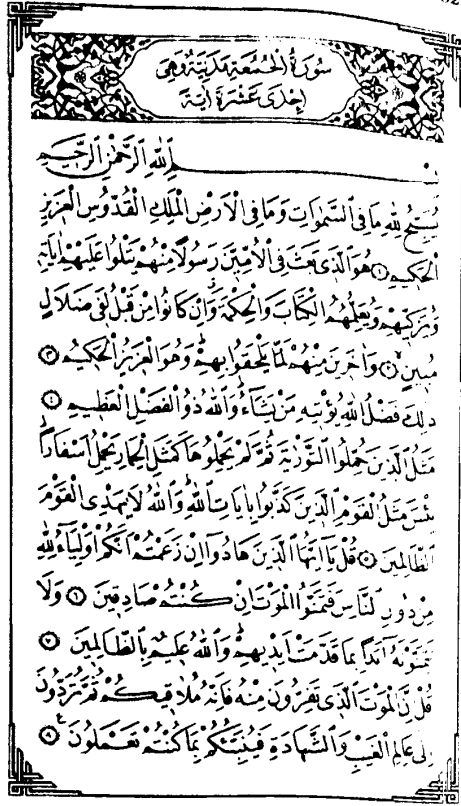 سُورَةُ الْجُمُعَةِ مَدَنِيَّةٌ وَهِيَ
اِحْدٰى عَشْرَةَ اٰيَةً
بِسْمِ اللّٰهِ الرَّحْمٰنِ الرَّحِيمِ
يُسَبِّحُ لِلّٰهِ مَا فِى السَّمٰوَاتِ وَمَا فِى الْاَرْضِ الْمَلِكِ الْقُدُّوسِ الْعَزِيزِ
الْحَكِيمِ ١ هُوَ الَّذٖى بَعَثَ فِى الْاُمِّيّٖنَ رَسُولًا مِنْهُمْ يَتْلُوا عَلَيْهِمْ اٰيَاتِهٖ
وَيُزَكّٖيهِمْ وَيُعَلِّمُهُمُ الْكِتَابَ وَالْحِكْمَةَ وَاِنْ كَانُوا مِنْ قَبْلُ لَفٖى ضَلَالٍ
مُبٖينٍ ٢ وَاٰخَرٖينَ مِنْهُمْ لَمَّا يَلْحَقُوا بِهِمْ وَهُوَ الْعَزٖيزُ الْحَكٖيمُ ٣
ذٰلِكَ فَضْلُ اللّٰهِ يُؤْتٖيهِ مَنْ يَشَاءُ وَاللّٰهُ ذُو الْفَضْلِ الْعَظٖيمِ ٤
مَثَلُ الَّذٖينَ حُمِّلُوا التَّوْرٰيةَ ثُمَّ لَمْ يَحْمِلُوهَا كَمَثَلِ الْحِمَارِ يَحْمِلُ اَسْفَارًا
بِئْسَ مَثَلُ الْقَوْمِ الَّذٖينَ كَذَّبُوا بِاٰيَاتِ اللّٰهِ وَاللّٰهُ لَا يَهْدِى الْقَوْمَ
الظَّالِمٖينَ ٥ قُلْ يَا اَيُّهَا الَّذٖينَ هَادُوا اِنْ زَعَمْتُمْ اَنَّكُمْ اَوْلِيَاءُ لِلّٰهِ
مِنْ دُونِ النَّاسِ فَتَمَنَّوُا الْمَوْتَ اِنْ كُنْتُمْ صَادِقٖينَ ٦ وَلَا
يَتَمَنَّوْنَهُ اَبَدًا بِمَا قَدَّمَتْ اَيْدٖيهِمْ وَاللّٰهُ عَلٖيمٌ بِالظَّالِمٖينَ ٧
قُلْ اِنَّ الْمَوْتَ الَّذٖى تَفِرُّونَ مِنْهُ فَاِنَّهُ مُلَاقٖيكُمْ ثُمَّ تُرَدُّونَ
اِلٰى عَالِمِ الْغَيْبِ وَالشَّهَادَةِ فَيُنَبِّئُكُمْ بِمَا كُنْتُمْ تَعْمَلُونَ ٨